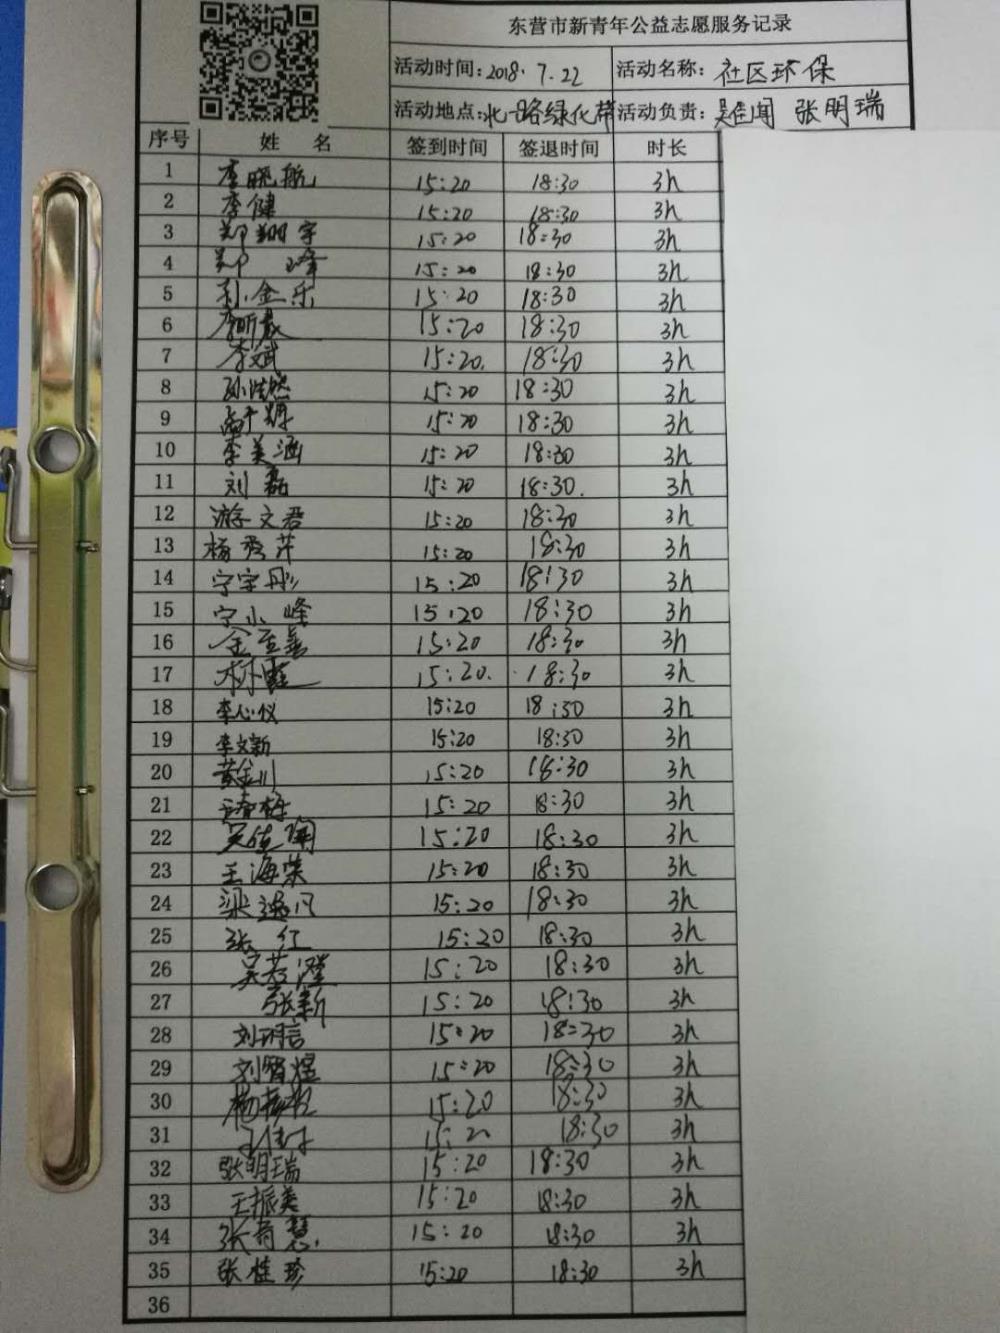 东营市新青年公益志愿服务记录
活动时间: 2018.7.22 活动名称: 社区环保
活动地点: 北一路绿化带 活动负责: 吴佳闻 张明瑞
序号 姓名 签到时间 签退时间 时长
1 李晓航 15:20 18:30 3h
2 李健 15:20 18:30 3h
3 郑翔宇 15:20 18:30 3h
4 郑峰 15:20 18:30 3h
5 孙金乐 15:20 18:30 3h
6 15:20 18:30 3h
7 李斌 15:20. 18:30 3h
8 孙浩然 15:20 18:30 3h
9 15:20 18:30 3h
10 李美涵 15:20 18:30 3h
11 刘磊 15:20 18:30. 3h
12 游文君 15:20 18:30 3h
13 杨秀萍 15:20 18:30 3h
14 宁宇彤 15:20 18:30 3h
15 宁小峰 15:20 18:30 3h
16 15:20 18:30 3h
17 林霞 15:20. 18:30 3h
18 李心仪 15:20 18:30 3h
19 李文新 15:20 18:30 3h
20 黄金川 15:20 18:30 3h
21 15:20 18:30 3h
22 吴佳闻 15:20 18:30 3h
23 王海荣 15:20 18:30 3h
24 梁逸凡 15:20 18:30 3h
25 张红 15:20 18:30 3h
26 吴若滢 15:20 18:30 3h
27 张新 15:20 18:30 3h
28 刘玥言 15:20 18:30 3h
29 刘智煜 15:20 18:30 3h
30 15:20 18:30 3h
31 15:20 18:30 3h
32 张明瑞 15:20 18:30 3h
33 王振美 15:20 18:30 3h
34 15:20 18:30 3h
35 张桂珍 15:20 18:30 3h
36